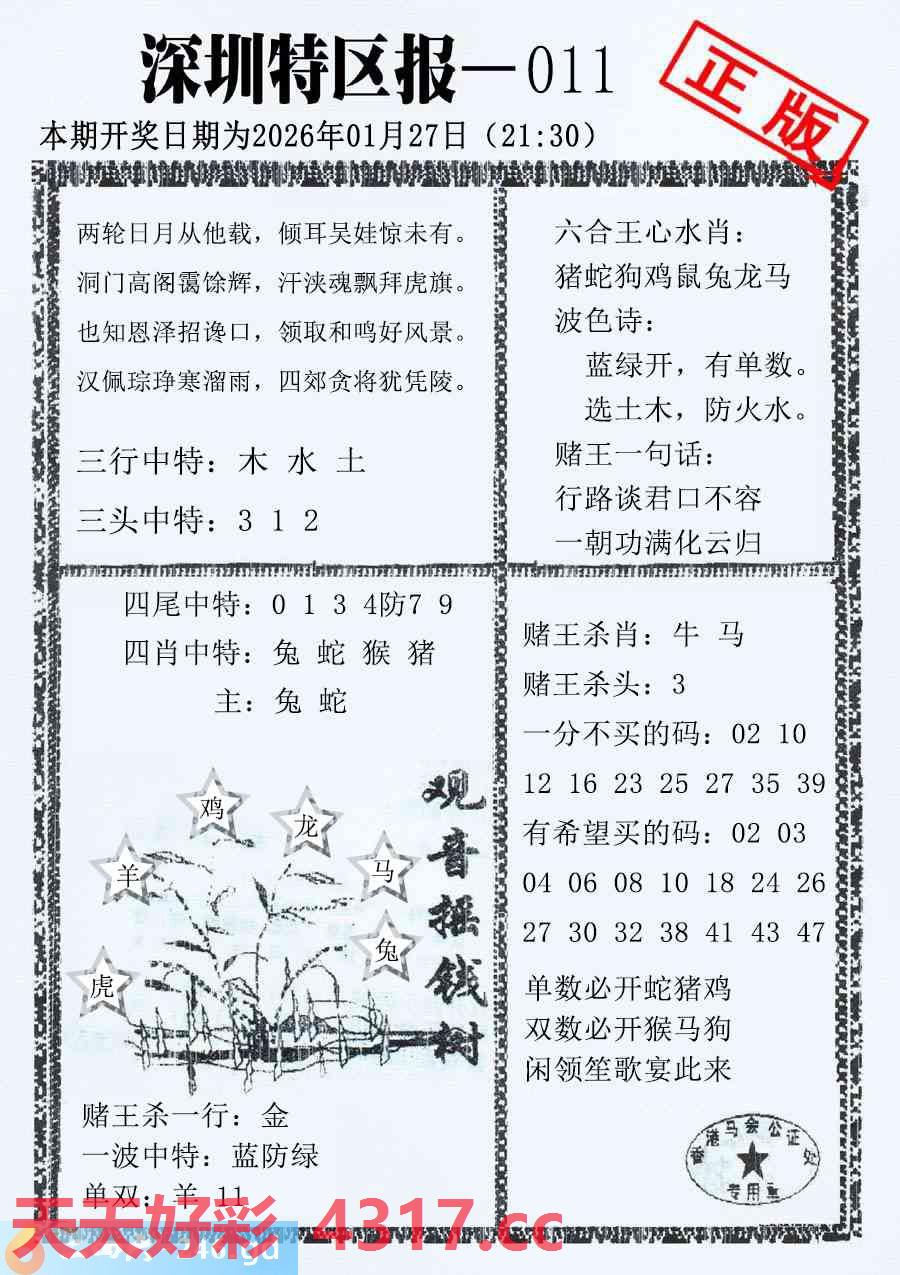 深圳特区报—011
正版
本期开奖日期为2026年01月27日（21:30）
两轮日月从他载，倾耳吴娃惊未有。
洞门高阁霭馀辉，汗浃魂飘拜虎旗。
也知恩泽招谗口，领取和鸣好风景。
汉佩琮琤寒溜雨，四郊贪将犹凭陵。
三行中特：木 水 土
三头中特：3 1 2
六合王心水肖：
猪蛇狗鸡鼠兔龙马
波色诗：
蓝绿开，有单数。
选土木，防火水。
赌王一句话：
行路谈君口不容
一朝功满化云归
四尾中特：0 1 3 4防7 9
四肖中特：兔 蛇 猴 猪
主：兔 蛇
观音摇钱树
鸡
龙
羊
马
兔
虎
赌王杀一行：金
一波中特：蓝防绿
单双：羊 11
赌王杀肖：牛 马
赌王杀头：3
一分不买的码：02 10
12 16 23 25 27 35 39
有希望买的码：02 03
04 06 08 10 18 24 26
27 30 32 38 41 43 47
单数必开蛇猪鸡
双数必开猴马狗
闲领笙歌宴此来
香港马会公证处
专用章
天天好彩 4317.cc